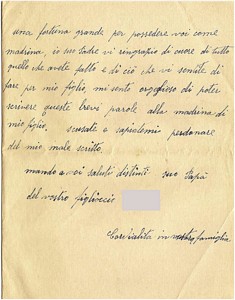 una fortuna grande per possedere voi come
madrina, io suo Padre vi ringrazio di cuore di tutto
quello che avete fatto e di ciò che vi sentite di
fare per mio figlio, mi sento orgolioso di poter
scrivere queste brevi parole alla madrina di
mio figlio, scusate e sapiatemi perdonare
del mio male scritto.
mando a voi saluti distinti suo Papà
del vostro figlioccio
Cordialità in vostra famiglia